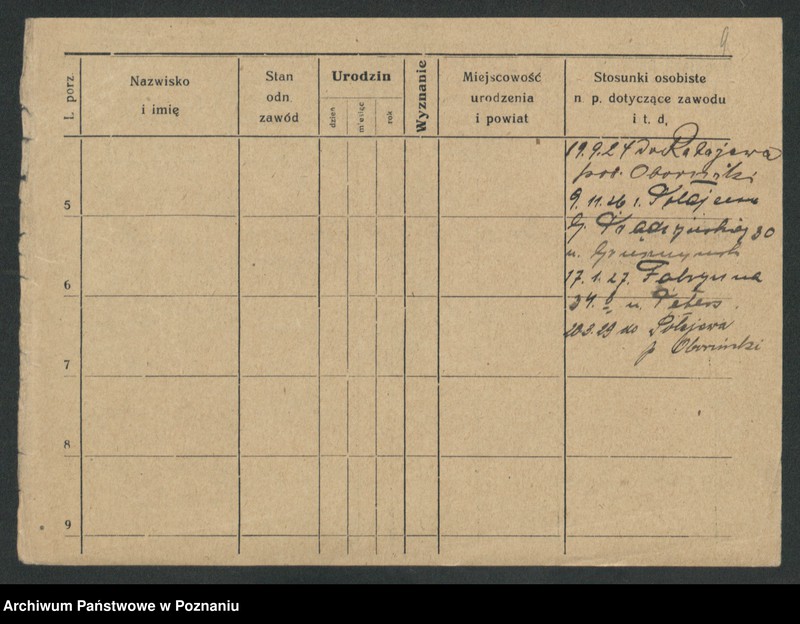 9
l. porz.
Nazwisko
i imię
Stan
odn.
zawód
Urodzin
dzień
miesiąc
rok
Wyznanie
Miejscowość
urodzenia
i powiat
Stosunki osobiste
n. p. dotyczące zawodu
i t. d.
19.9.24 do
pow. Obornicki
5
9.11.26 z
30
u.
6
17.1.27. Fabryczna
34. u. Peters.
20.3.29 do Połajewa
p Obornicki
7
8
9
Archiwum Państwowe w Poznaniu